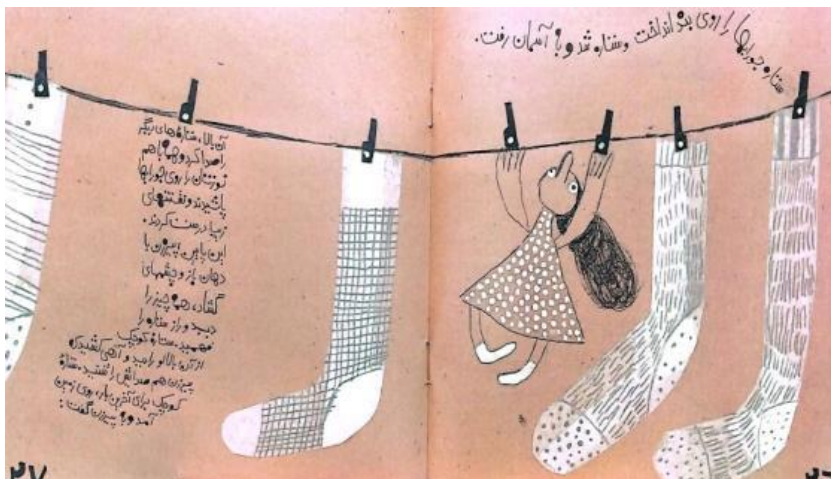 ستاره جورابها را روی بند انداخت و ستاره شد و به آسمان رفت.
آن بالا، ستاره‌های دیگر
را صدا کرد و همه با هم
نورشان را روی جورابها
پاشیدند و نقش‌های
زیبا درست کردند.
این پایین پیرزن با
دهان باز و چشمهای
گشاد، همه چیز را
دید و راز ستاره را
فهمید. ستاره کوچک
از آن بالا او را دید و آهی کشید که
پیرزن هم صدایش را شنید. ستاره
کوچک برای آخرین بار، روی زمین
آمد و به پیرزن گفت:
۲۷